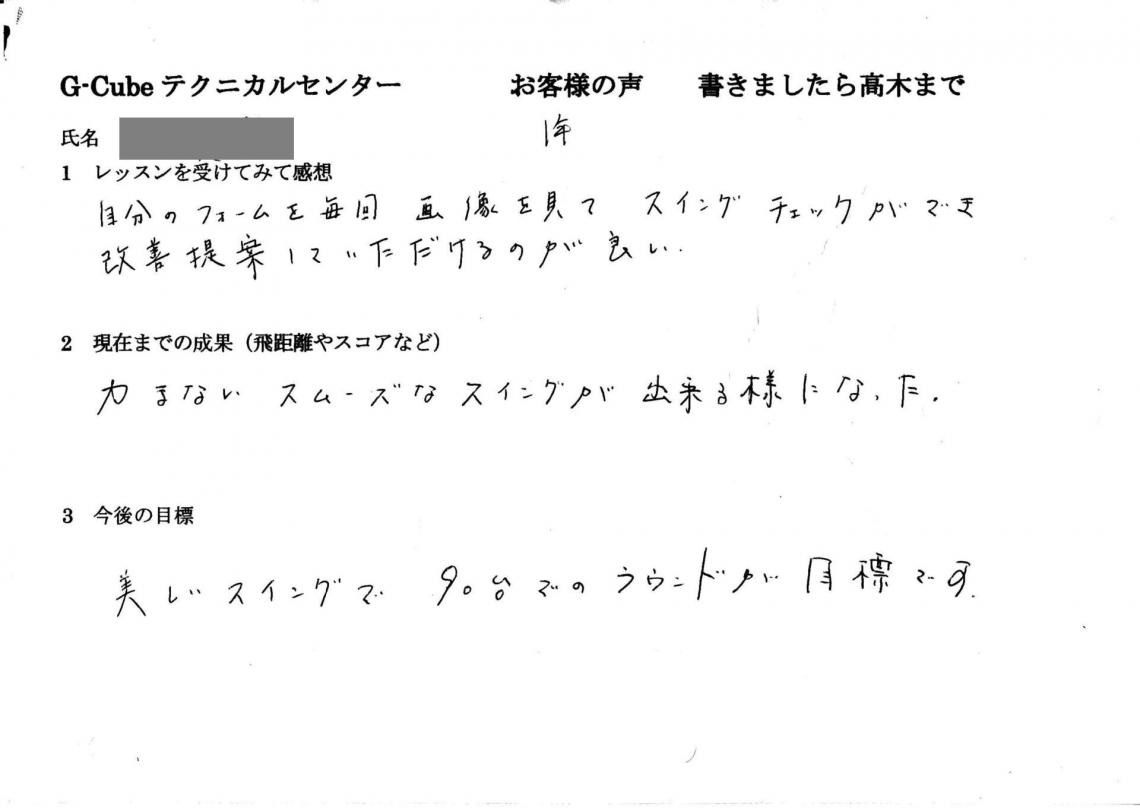 G-Cube テクニカルセンター　お客様の声　書きましたら高木まで
氏名　1年
1　レッスンを受けてみて感想
自分のフォームを毎回 画像を見て スイング チェックができ
改善提案していただけるのが良い.
2　現在までの成果（飛距離やスコアなど）
力まない スムーズな スイングが 出来る様になった.
3　今後の目標
美しいスイングで 90台での ラウンドが 目標です.